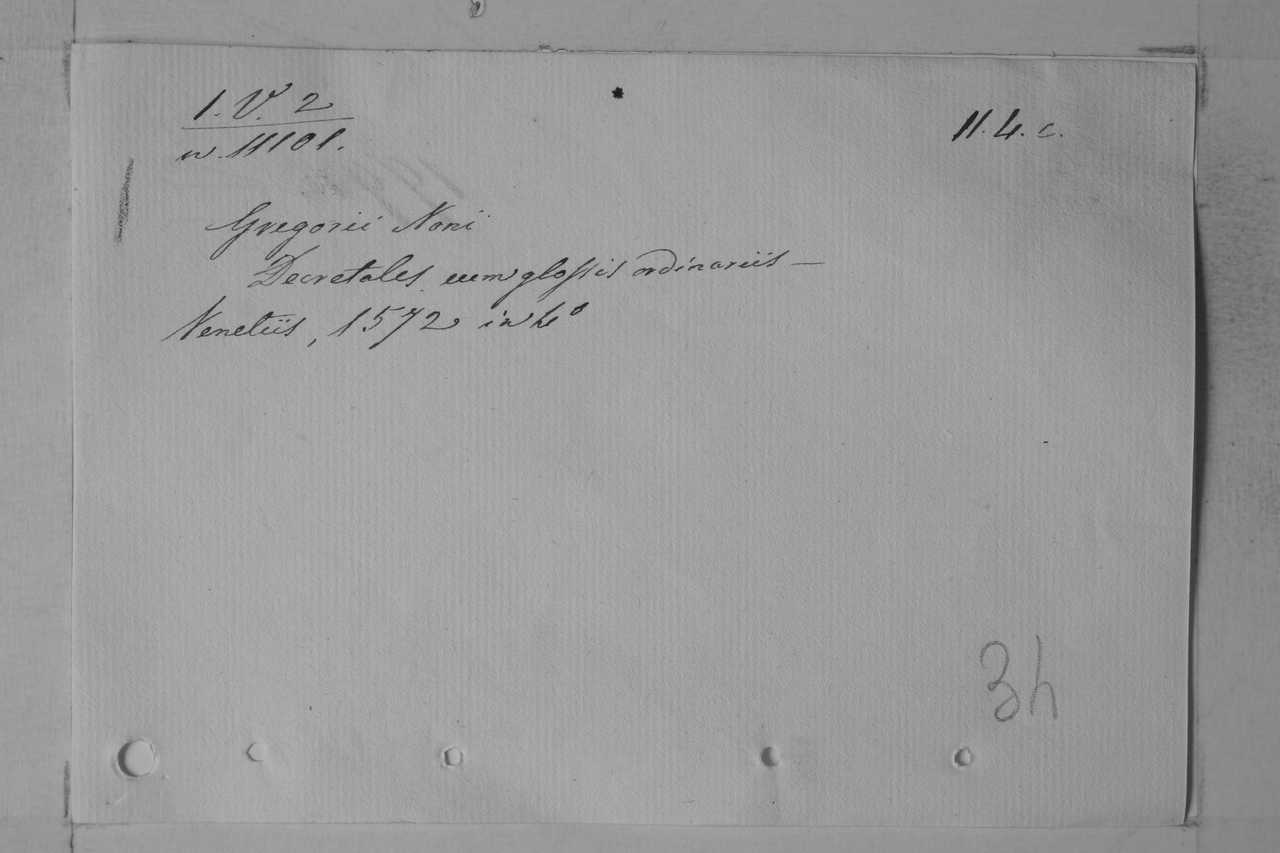 1. V. 2
n. 11101.
11. 4. c.
Gregorii Noni
Decretales cum glossis ordinariis —
Venetiis, 1572 in 4°
34